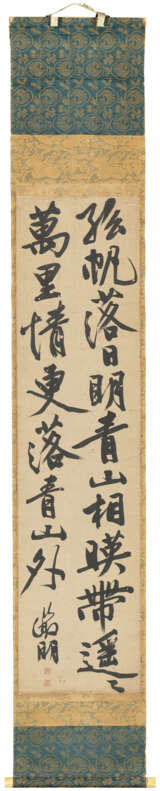 孤帆落日明青山相暎帶遥々
萬里情更落青山外
徵明